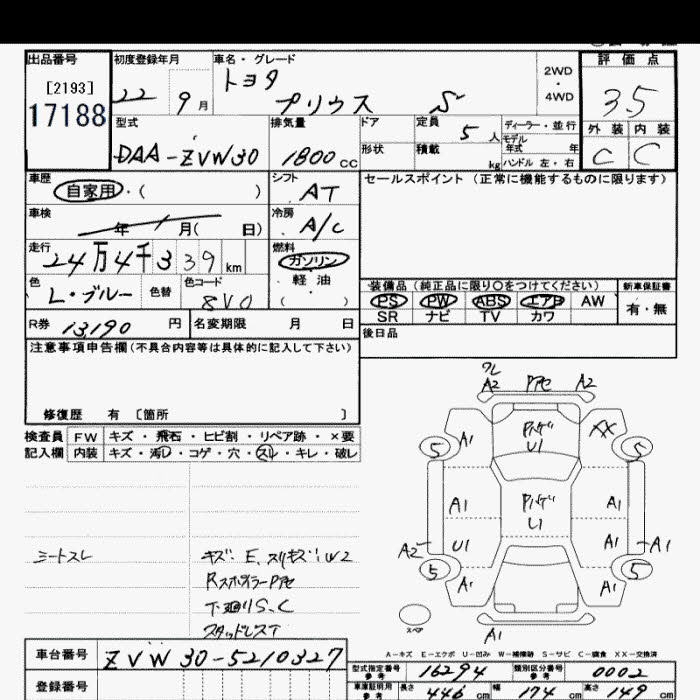 出品番号
[2193]
17188
初度登録年月
22 9 月
車名・グレード
トヨタ
プリウス S
2WD
・
4WD
評価点
3.5
外装 内装
C C
型式
DAA-ZVW30
排気量
1800 cc
ドア
定員
5 人
ディーラー・並行
モデル年式 年
形状
積載
kg
ハンドル 左・右
車歴
自家用・( )
シフト
AT
セールスポイント (正常に機能するものに限ります)
車検
年 月( 日)
冷房
A/C
走行
24万4千339 km
燃料
ガソリン
軽油
( )
色
L・ブルー
色替
色コード
8V0
装備品 (純正品に限り〇をつけてください)
新車保証書
PS PW ABS エアB AW
有・無
SR ナビ TV カワ
R券 13190 円
名変期限 月 日
後日品
注意事項申告欄(不具合内容等は具体的に記入して下さい)
修復歴 有 [箇所 ]
検査員
記入欄
FW キズ・飛石・ヒビ割・リペア跡・×要
内装 キズ・汚れ・コゲ・穴・スレ・キレ・破レ
シートスレ
キズ・E、スリキズ・W2
下廻りS、C
スタッドレスT
ワレ
A2 A2
5 A1 U1 XX 5
A1 U1 A1
A2 U1 A1 A1
5 A1 A1 5
スペア
A1
A-キズ E-エクボ U-凹み W-補修跡 S-サビ C-腐食 XX-交換済
車台番号
ZVW30-5210327
登録番号
型式指定番号
参考
16294
類別区分番号
参考
0002
車庫証明用
参考
長さ 446 cm 幅 174 cm 高さ 149 cm